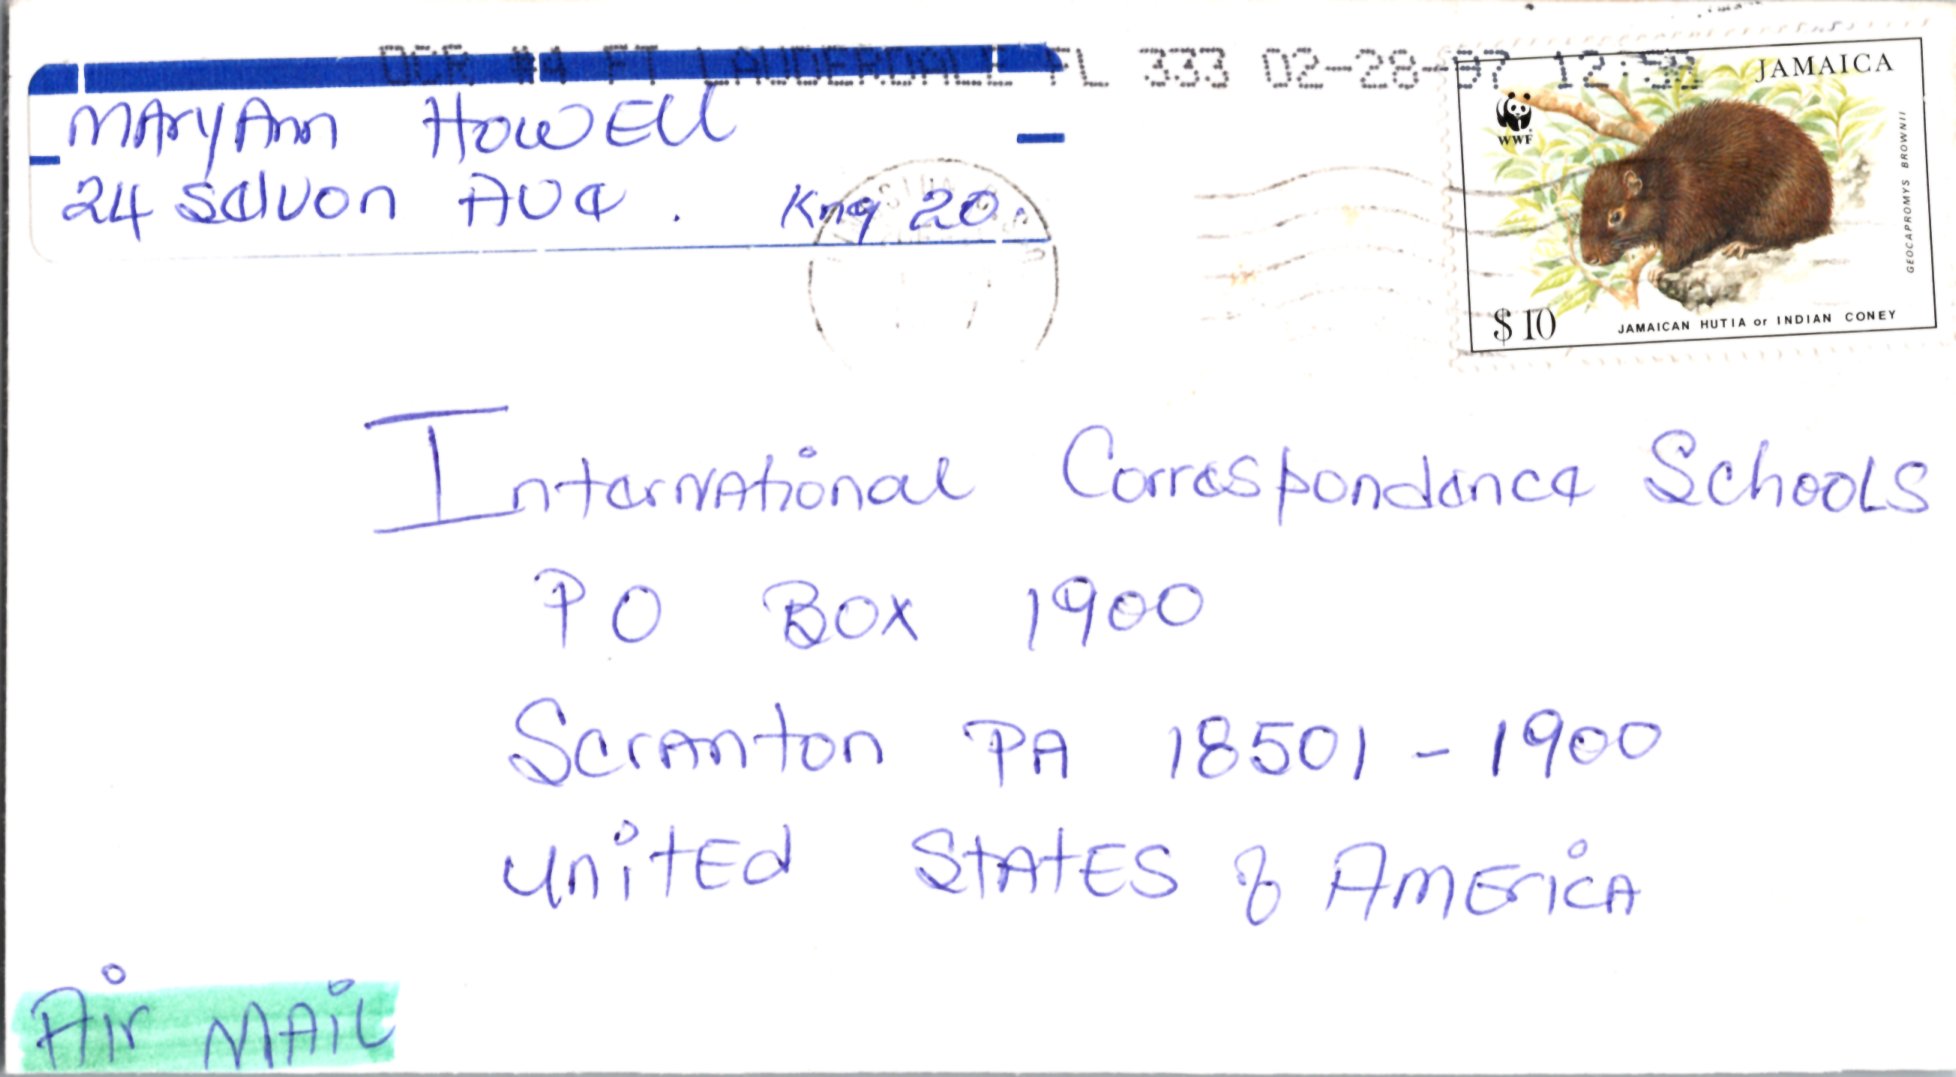 OCR #4 FT LAUDERDALE FL 333 02-28-97 12:
MAryAnn HowEll
24 Salvon Ave. Kng 20.
JAMAICA
WWF
GEOCAPROMYS BROWNII
$10
JAMAICAN HUTIA or INDIAN CONEY
InterNAtional Correspondence SchooLS
PO BOX 1900
ScrAnton PA 18501-1900
UnitEd StAtES of AmEricA
Air MAiL